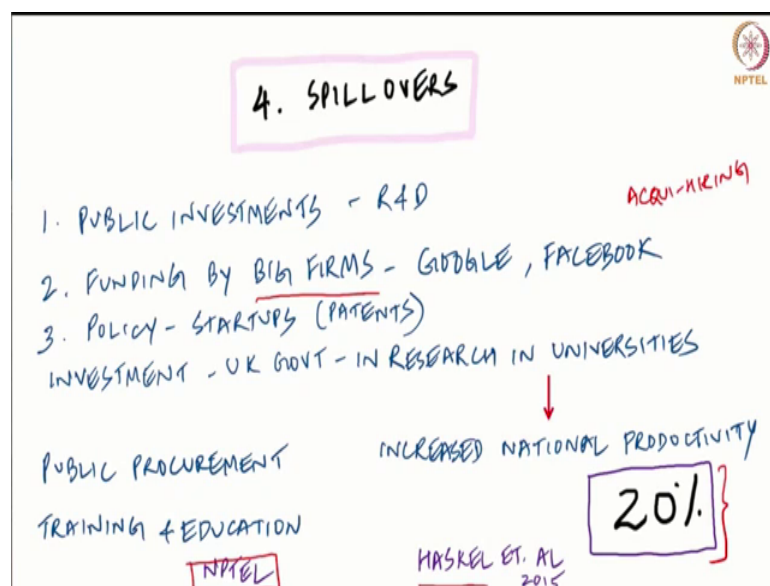 NPTEL
4. SPILLOVERS
ACQUI-HIRING
1. PUBLIC INVESTMENTS - R&D
2. FUNDING BY BIG FIRMS - GOOGLE, FACEBOOK
3. POLICY - STARTUPS (PATENTS)
INVESTMENT - UK GOVT - IN RESEARCH IN UNIVERSITIES
INCREASED NATIONAL PRODUCTIVITY
PUBLIC PROCUREMENT
20%
TRAINING & EDUCATION
NPTEL
HASKEL ET. AL
2015